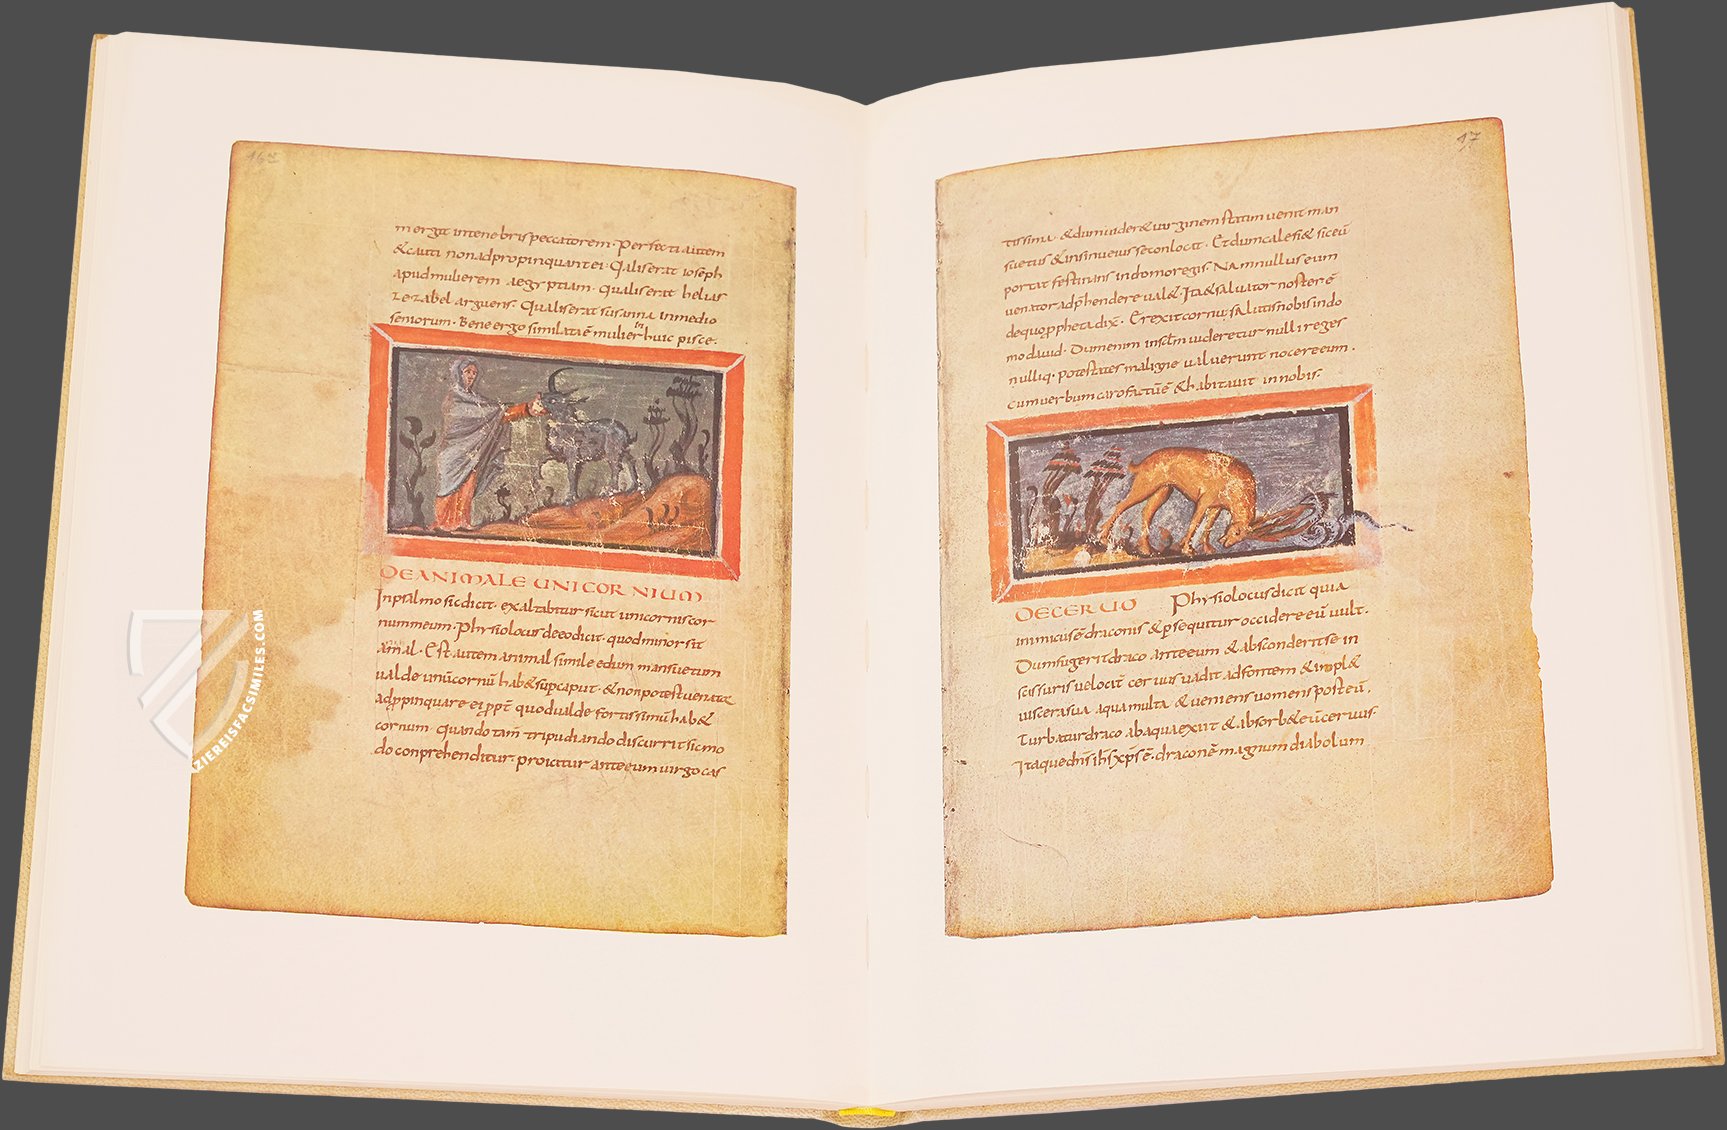 16v
mergit intenebris peccatorem. Perfecti autem
& cauti non adpropinquant ei. Qualis erat ioseph
apud mulierem aegyptiam. qualis erat helias
iezabel arguens. Qualis erat susanna in medio
seniorum. Bene ergo similata ē mulier huic pisce.
in
DE ANIMALE UNICORNIUM
In psalmo sic dicit. exaltabitur sicut unicornis cor
num meum. Physiolocus de eo dicit. quod minor sit
amal. Est autem animal simile edum mansuetum
ualde. unū cornū hab& sup caput. & non potest uenator
adppinquare ei ppt quod ualde fortissimū hab&
cornum. quando tam tripudiando discurrit sic mo
do conprehenditur. proicitur ante eum uirgo cas
17
tissima. & dum uider& uirginem statim uenit man
suetus & in sinu eius se conlocat. Et dum calefi&
portat festinans in domo regis. Nam nullus eum
uenator adphendere ual&. Ita & saluator noster ē
de quo ppheta dix. Erexit cornu salutis nobis in do
mo dauid. Dum enim in uideretur nulli reges
nulliq. potestates maligne ualuerunt nocere eum.
cum uerbum caro factū ē & habitauit in nobis.
DE CERUO Physiolocus dicit quia
inimicus ē draconis & psequitur occidere eū uult.
Dum fugerit draco ante eum & absconderit se in
scissuris uelocit ceruus uadit ad fontem & impl&
uiscera sua aqua multa & ueniens uomens post eū.
Turbatur draco ab aqua exiit & absorb& eū ceruus.
Itaque dns ihs xps ē. draconē magnum diabolum
ZIEREISFACSIMILES.COM